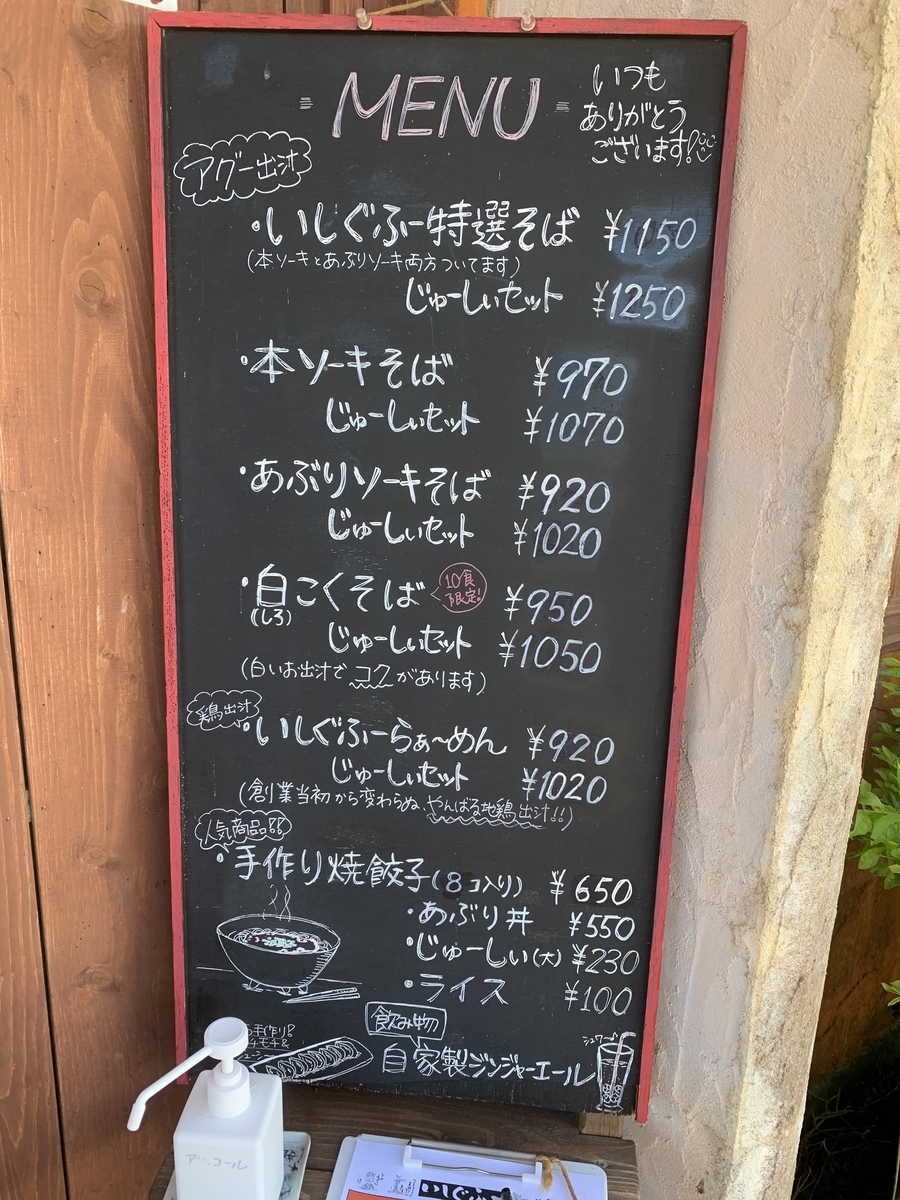 MENU
いつも
ありがとう
ございます!
アグー出汁
・いしぐふー特選そば ¥1150
(本ソーキとあぶりソーキ両方ついてます)
じゅーしぃセット ¥1250
・本ソーキそば ¥970
じゅーしぃセット ¥1070
・あぶりソーキそば ¥920
じゅーしぃセット ¥1020
・白こくそば ¥950
(しろ)
10食
限定!
じゅーしぃセット ¥1050
(白いお出汁でコクがあります)
鶏出汁
・いしぐふーらぁ〜めん ¥920
じゅーしぃセット ¥1020
(創業当初から変わらぬ、やんばる地鶏出汁!!)
人気商品!!
・手作り焼餃子(8コ入り) ¥650
・あぶり丼 ¥550
・じゅーしぃ(大) ¥230
・ライス ¥100
飲み物
自家製ジンジャーエール
シュワー
手作り!
モチモチ&
アルコール